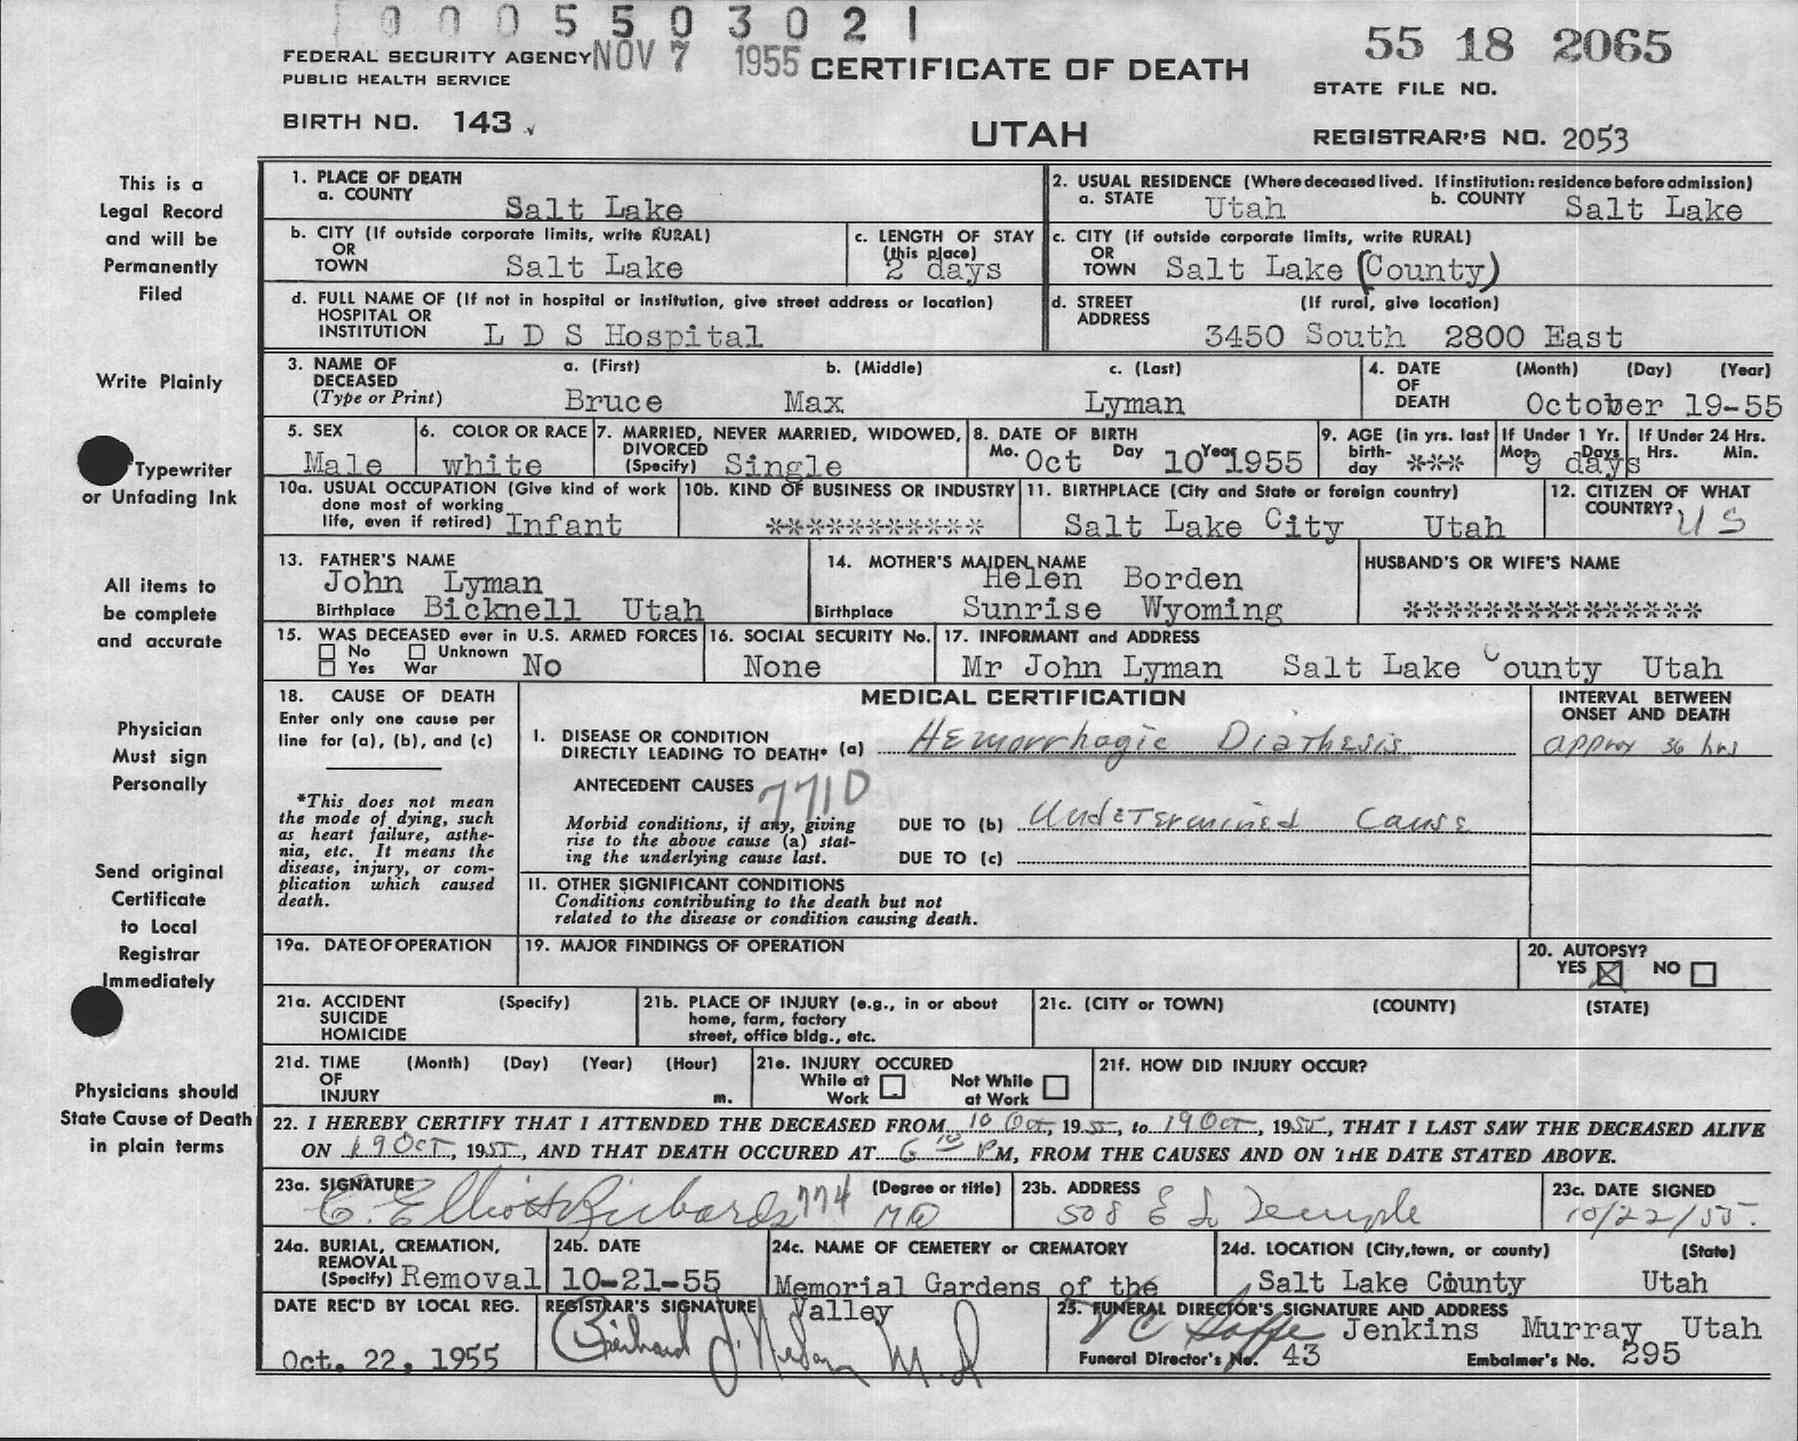 0 0 0 5 5 0 3 0 2 1
FEDERAL SECURITY AGENCY NOV 7 1955 CERTIFICATE OF DEATH 55 18 2065
PUBLIC HEALTH SERVICE
STATE FILE NO.
BIRTH NO. 143
UTAH
REGISTRAR'S NO. 2053
This is a
Legal Record
and will be
Permanently
Filed
Write Plainly
Typewriter
or Unfading Ink
All items to
be complete
and accurate
Physician
Must sign
Personally
Send original
Certificate
to Local
Registrar
Immediately
Physicians should
State Cause of Death
in plain terms
1. PLACE OF DEATH
a. COUNTY Salt Lake
2. USUAL RESIDENCE (Where deceased lived. If institution: residence before admission)
a. STATE Utah b. COUNTY Salt Lake
b. CITY (If outside corporate limits, write RURAL)
OR
TOWN Salt Lake
c. LENGTH OF STAY
(this place)
2 days
c. CITY (if outside corporate limits, write RURAL)
OR
TOWN Salt Lake (County)
d. FULL NAME OF (If not in hospital or institution, give street address or location)
HOSPITAL OR
INSTITUTION L D S Hospital
d. STREET (If rural, give location)
ADDRESS
3450 South 2800 East
3. NAME OF a. (First) b. (Middle) c. (Last)
DECEASED
(Type or Print) Bruce Max Lyman
4. DATE (Month) (Day) (Year)
OF
DEATH October 19-55
5. SEX
Male
6. COLOR OR RACE
white
7. MARRIED, NEVER MARRIED, WIDOWED,
DIVORCED
(Specify) Single
8. DATE OF BIRTH
Mo. Oct Day 10 Year 1955
9. AGE (in yrs. last
birth-
day ***
If Under 1 Yr.
Mos. Days
9 days
If Under 24 Hrs.
Hrs. Min.
10a. USUAL OCCUPATION (Give kind of work
done most of working
life, even if retired) Infant
10b. KIND OF BUSINESS OR INDUSTRY
***********
11. BIRTHPLACE (City and State or foreign country)
Salt Lake City Utah
12. CITIZEN OF WHAT
COUNTRY?
U S
13. FATHER'S NAME
John Lyman
Birthplace Bicknell Utah
14. MOTHER'S MAIDEN NAME
Helen Borden
Birthplace Sunrise Wyoming
HUSBAND'S OR WIFE'S NAME
***************
15. WAS DECEASED ever in U.S. ARMED FORCES
No Unknown
Yes War No
16. SOCIAL SECURITY No.
None
17. INFORMANT and ADDRESS
Mr John Lyman Salt Lake County Utah
18. CAUSE OF DEATH
Enter only one cause per
line for (a), (b), and (c)
*This does not mean
the mode of dying, such
as heart failure, asthe-
nia, etc. It means the
disease, injury, or com-
plication which caused
death.
MEDICAL CERTIFICATION
INTERVAL BETWEEN
ONSET AND DEATH
I. DISEASE OR CONDITION
DIRECTLY LEADING TO DEATH* (a) Hemorrhagic Diathesis approx 36 hrs
ANTECEDENT CAUSES
771D
Morbid conditions, if any, giving
rise to the above cause (a) stat-
ing the underlying cause last.
DUE TO (b) Undetermined Cause
DUE TO (c)
II. OTHER SIGNIFICANT CONDITIONS
Conditions contributing to the death but not
related to the disease or condition causing death.
19a. DATE OF OPERATION
19. MAJOR FINDINGS OF OPERATION
20. AUTOPSY?
YES NO
21a. ACCIDENT (Specify)
SUICIDE
HOMICIDE
21b. PLACE OF INJURY (e.g., in or about
home, farm, factory
street, office bldg., etc.
21c. (CITY or TOWN) (COUNTY) (STATE)
21d. TIME (Month) (Day) (Year) (Hour)
OF
INJURY m.
21e. INJURY OCCURED
While at Not While
Work at Work
21f. HOW DID INJURY OCCUR?
22. I HEREBY CERTIFY THAT I ATTENDED THE DECEASED FROM 10 Oct, 1955, to 19 Oct, 1955, THAT I LAST SAW THE DECEASED ALIVE
ON 19 Oct, 1955, AND THAT DEATH OCCURED AT 6 10 PM, FROM THE CAUSES AND ON THE DATE STATED ABOVE.
23a. SIGNATURE (Degree or title)
C. Elliott Richards 774 MD
23b. ADDRESS
508 E So Temple
23c. DATE SIGNED
10/22/55.
24a. BURIAL, CREMATION,
REMOVAL
(Specify) Removal
24b. DATE
10-21-55
24c. NAME OF CEMETERY or CREMATORY
Memorial Gardens of the
Valley
24d. LOCATION (City, town, or county) (State)
Salt Lake County Utah
DATE REC'D BY LOCAL REG.
Oct. 22, 1955
REGISTRAR'S SIGNATURE
M.D
25. FUNERAL DIRECTOR'S SIGNATURE AND ADDRESS
Jenkins Murray Utah
Funeral Director's No. 43 Embalmer's No. 295